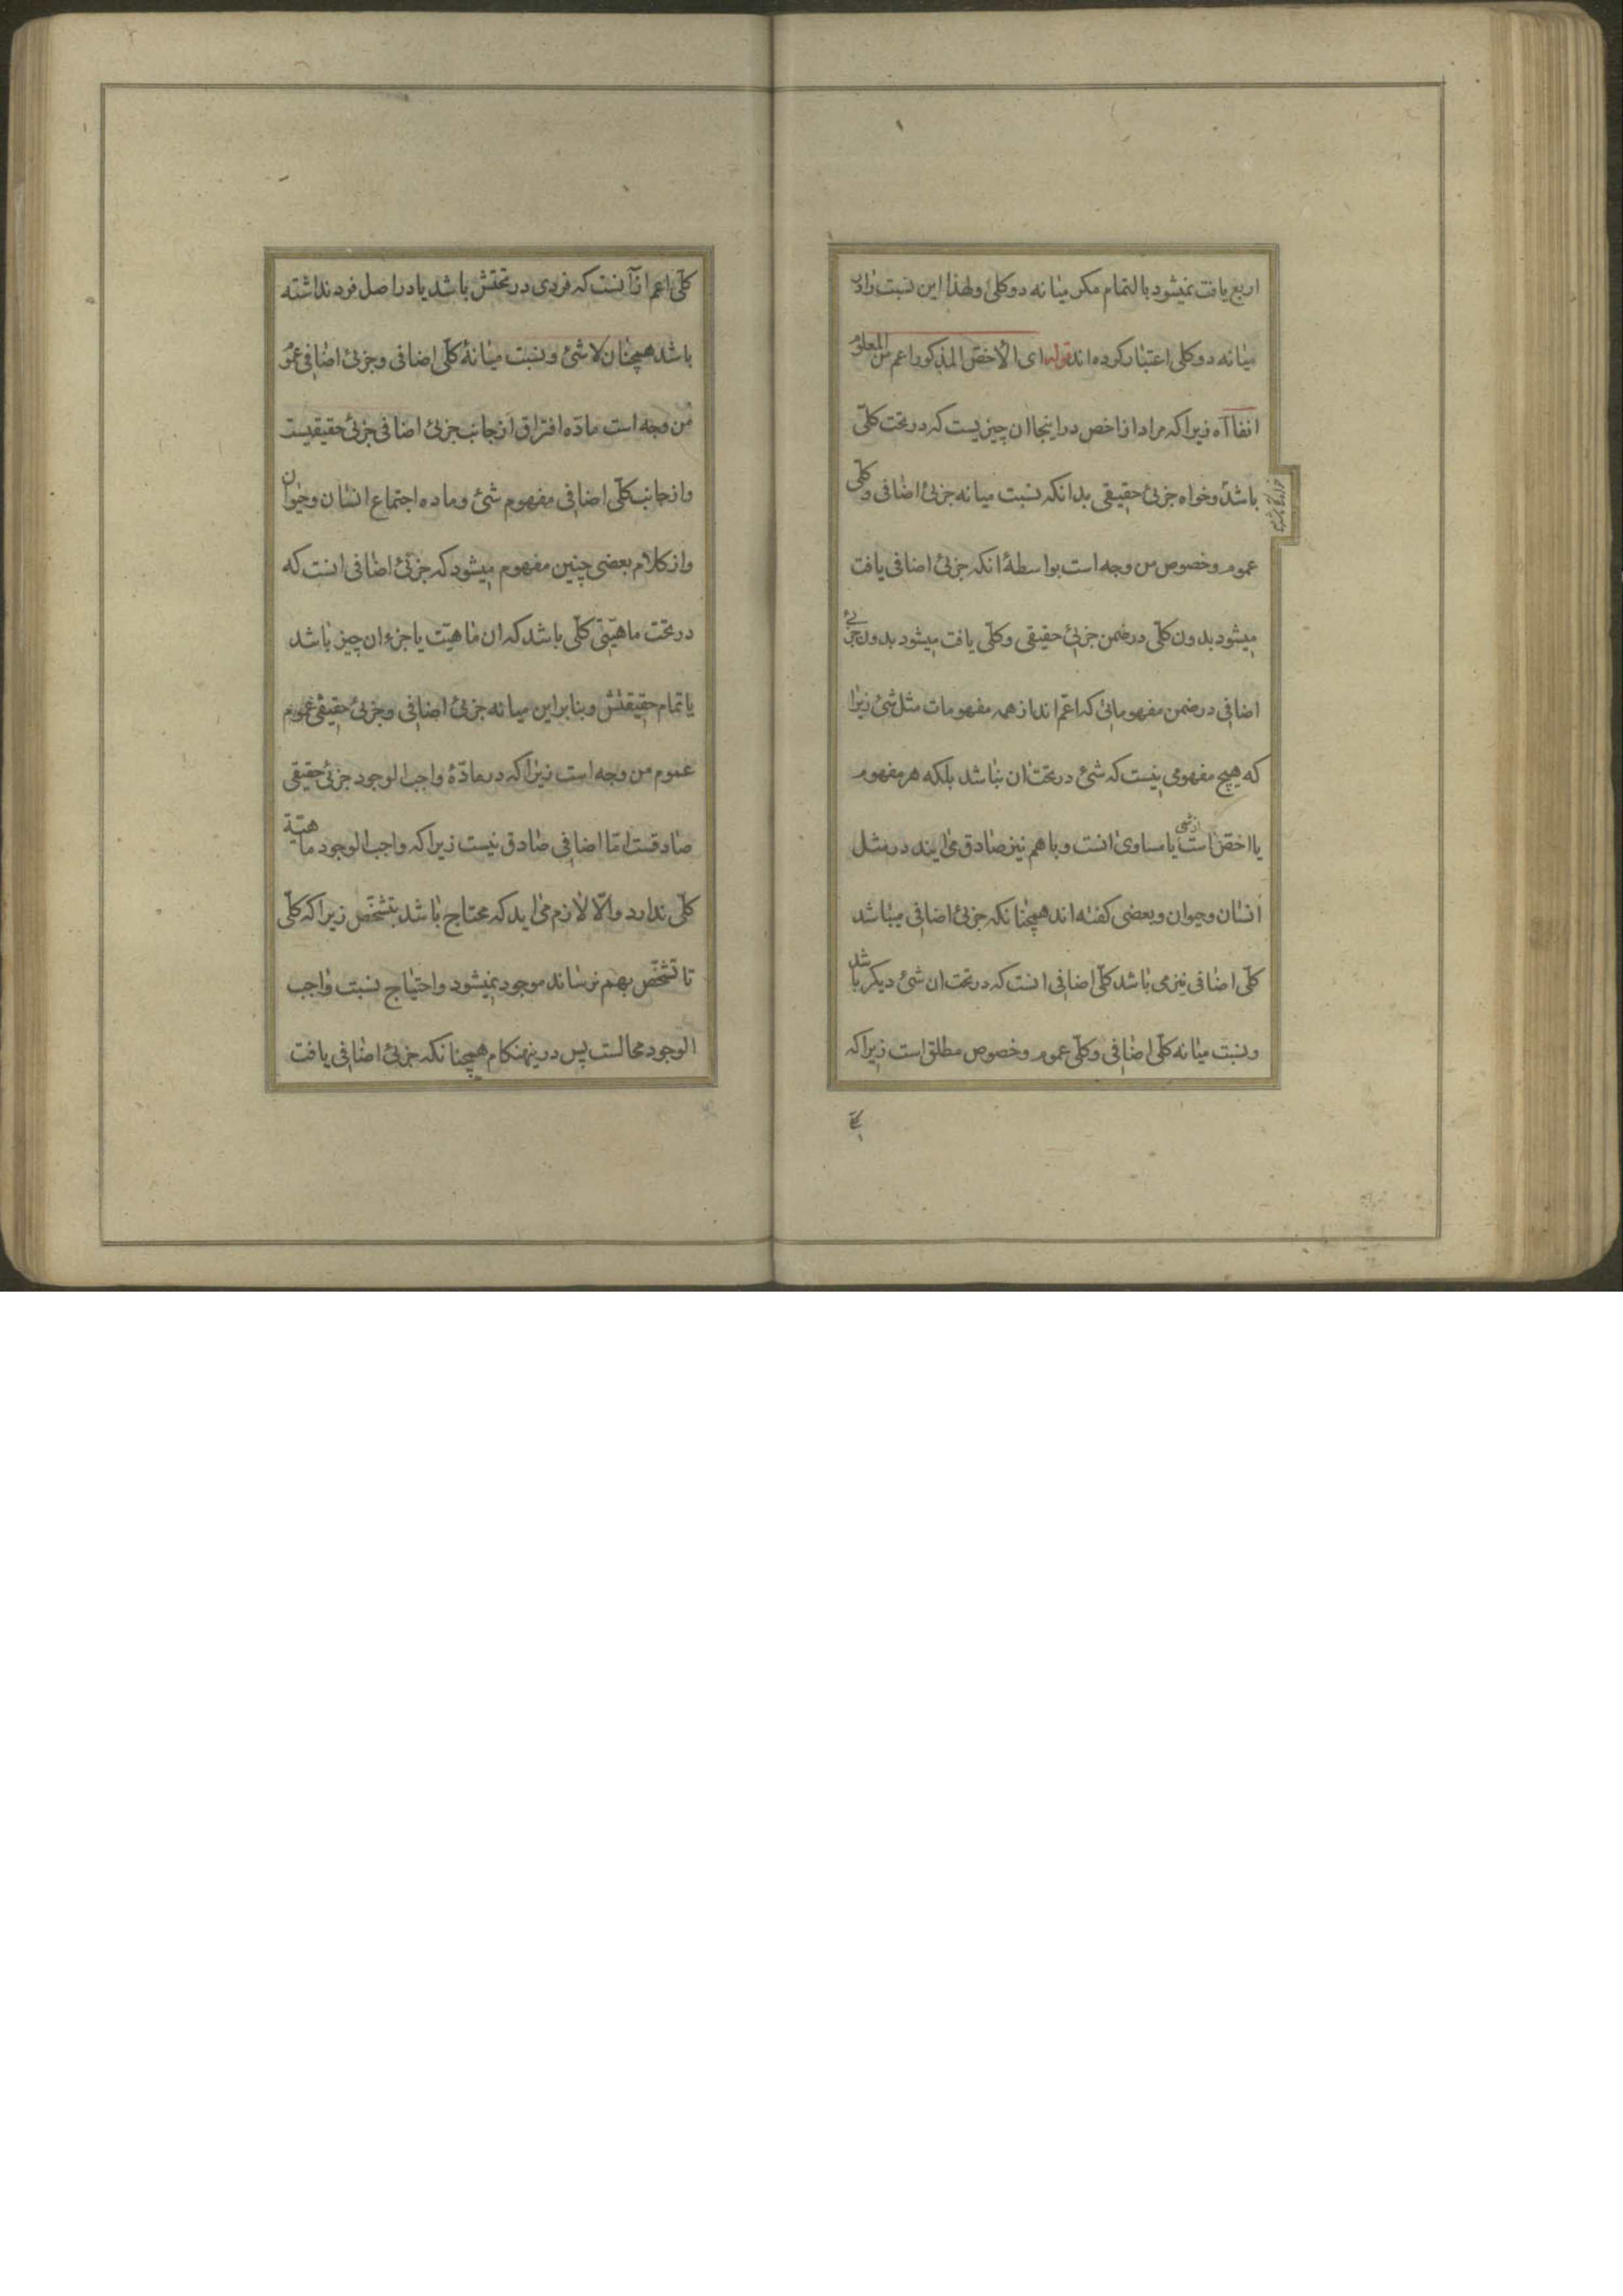 اربع یافت نمیشود بالتمام مکر میانه دو کلی ولهذا این نسبت را در
میانه دو کلی اعتبار کرده اند قوله ای الاخص المذکور اعم من المعلوم
انفا آه زیرا که مراد از اخص در اینجا ان چیزیست که در تحت کلی
باشد وخواه جزئی حقیقی بدانکه نسبت میانه جزئی اضافی و کلی
عموم وخصوص من وجه است بواسطهٔ انکه جزئی اضافی یافت
میشود بدون کلی در ضمن جزئی حقیقی وکلی یافت میشود بدون جزئی
اضافی در ضمن مفهوماتی که اعم اند از همه مفهومات مثل شئ زیرا
که هیچ مفهومی نیست که شئ در تحت ان نباشد بلکه هر مفهوم
یا اخص است از شی یا مساوی انست وباهم نیز صادق می ایند در مثل
انسان وحیوان وبعضی کفته اند همچنانکه جزئی اضافی میباشد
کلی اضافی نیز می باشد کلی اضافی انست که در تحت ان شئ دیکر باشد
ونسبت میانه کلی اضافی وکلی عموم وخصوص مطلق است زیرا که
کلی اعم از آنست که فردی در تحتش باشد یا در اصل فرد نداشته
باشد همچنان لا شئ ونسبت میانهٔ کلی اضافی وجزئی اضافی عموم
من وجه است مادّه افتراق از جانب جزئی اضافی جزئی حقیقیست
واز جانب کلی اضافی مفهوم شئ وماده اجتماع انسان وحیوان
واز کلام بعضی چنین مفهوم میشود که جزئی اضافی انست که
در تحت ماهیّتی کلی باشد که ان ماهیّت یا جزء ان چیز باشد
یا تمام حقیقتش وبنابراین میانه جزئی اضافی وجزئی حقیقی عموم
عموم من وجه است زیرا که در مادّهٔ واجب الوجود جزئی حقیقی
صادقست امّا اضافی صادق نیست زیرا که واجب الوجود ماهیّة
کلی ندارد والّا لازم می اید که محتاج باشد بتشخّص زیرا که کلی
تا تشخّص بهم نرساند موجود نمیشود واحتیاج نسبت واجب
الوجود محالست پس درینهنکام همچنانکه جزئی اضافی یافت